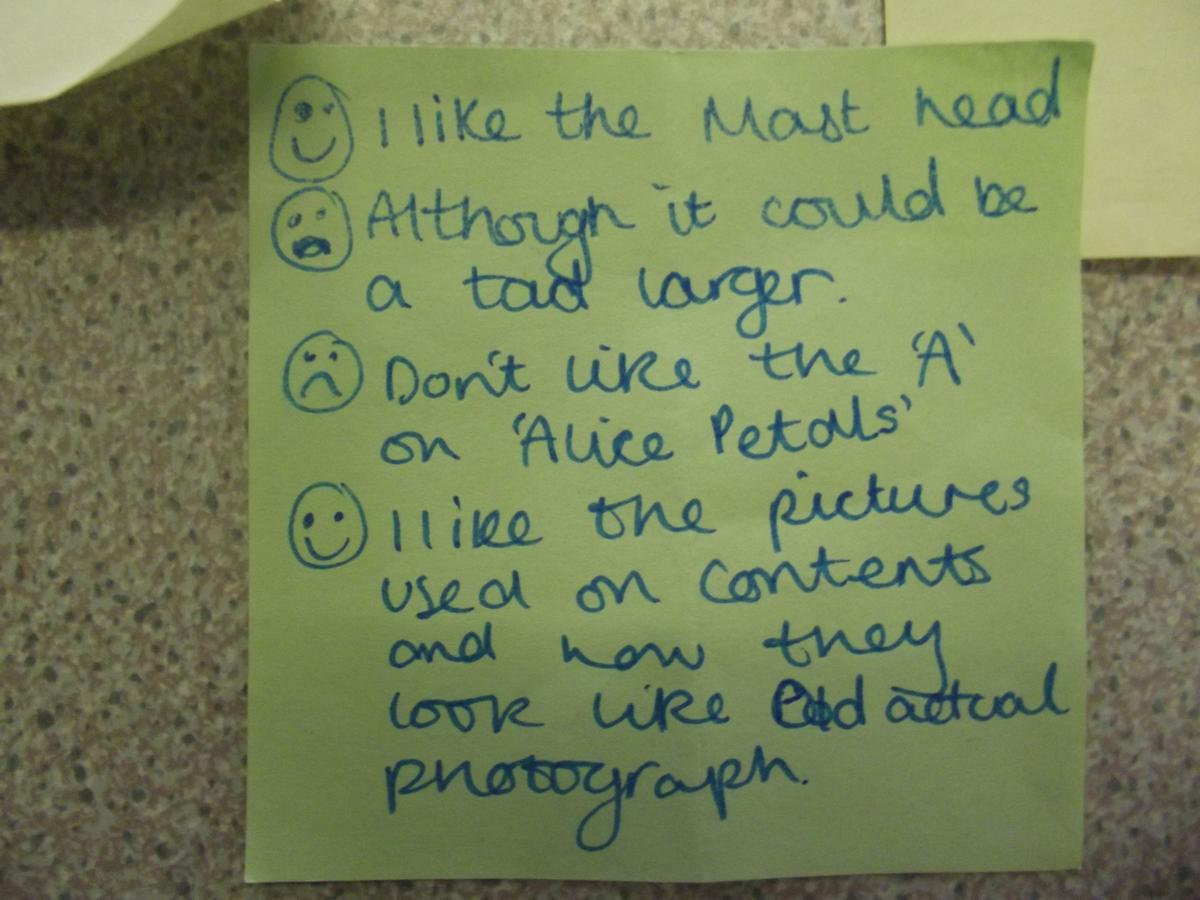 I like the Mast head
Although it could be
a tad larger.
Don't like the 'A'
on 'Alice Petals'
I like the pictures
used on contents
and how they
look like actual
photograph.